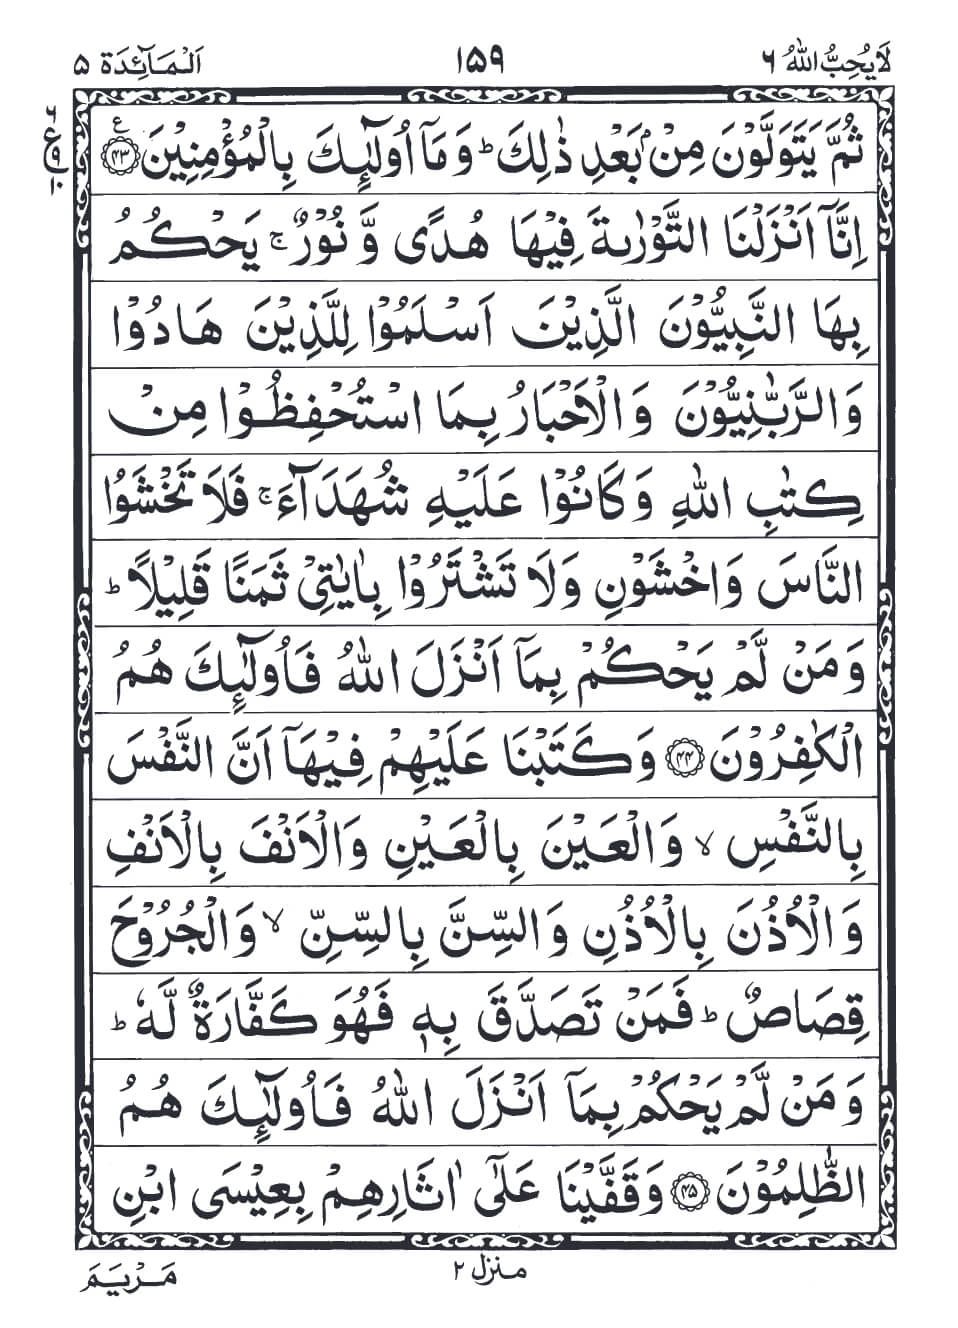 لَا يُحِبُّ اللّٰهُ ٦
١٥٩
اَلْمَآئِدَة ٥
٦
ع
٩
١٠
ثُمَّ يَتَوَلَّوْنَ مِنْۢ بَعْدِ ذٰلِكَ ؕ وَ مَاۤ اُولٰٓئِكَ بِالْمُؤْمِنِيْنَ ﴿٤٣﴾ ع
اِنَّاۤ اَنْزَلْنَا التَّوْرٰىةَ فِيْهَا هُدًى وَّ نُوْرٌ ۚ يَحْكُمُ
بِهَا النَّبِيُّوْنَ الَّذِيْنَ اَسْلَمُوْا لِلَّذِيْنَ هَادُوْا
وَ الرَّبّٰنِيُّوْنَ وَ الْاَحْبَارُ بِمَا اسْتُحْفِظُوْا مِنْ
كِتٰبِ اللّٰهِ وَ كَانُوْا عَلَيْهِ شُهَدَآءَ ۚ فَلَا تَخْشَوُا
النَّاسَ وَ اخْشَوْنِ وَ لَا تَشْتَرُوْا بِاٰيٰتِيْ ثَمَنًا قَلِيْلًا ؕ
وَ مَنْ لَّمْ يَحْكُمْ بِمَاۤ اَنْزَلَ اللّٰهُ فَاُولٰٓئِكَ هُمُ
الْكٰفِرُوْنَ ﴿٤٤﴾ وَ كَتَبْنَا عَلَيْهِمْ فِيْهَاۤ اَنَّ النَّفْسَ
بِالنَّفْسِ ۙ وَ الْعَيْنَ بِالْعَيْنِ وَ الْاَنْفَ بِالْاَنْفِ
وَ الْاُذُنَ بِالْاُذُنِ وَ السِّنَّ بِالسِّنِّ ۙ وَ الْجُرُوْحَ
قِصَاصٌ ؕ فَمَنْ تَصَدَّقَ بِهٖ فَهُوَ كَفَّارَةٌ لَّهٗ ؕ
وَ مَنْ لَّمْ يَحْكُمْ بِمَاۤ اَنْزَلَ اللّٰهُ فَاُولٰٓئِكَ هُمُ
الظّٰلِمُوْنَ ﴿٤٥﴾ وَ قَفَّيْنَا عَلٰۤى اٰثَارِهِمْ بِعِيْسَى ابْنِ
منزل ٢
مَرْيَمَ